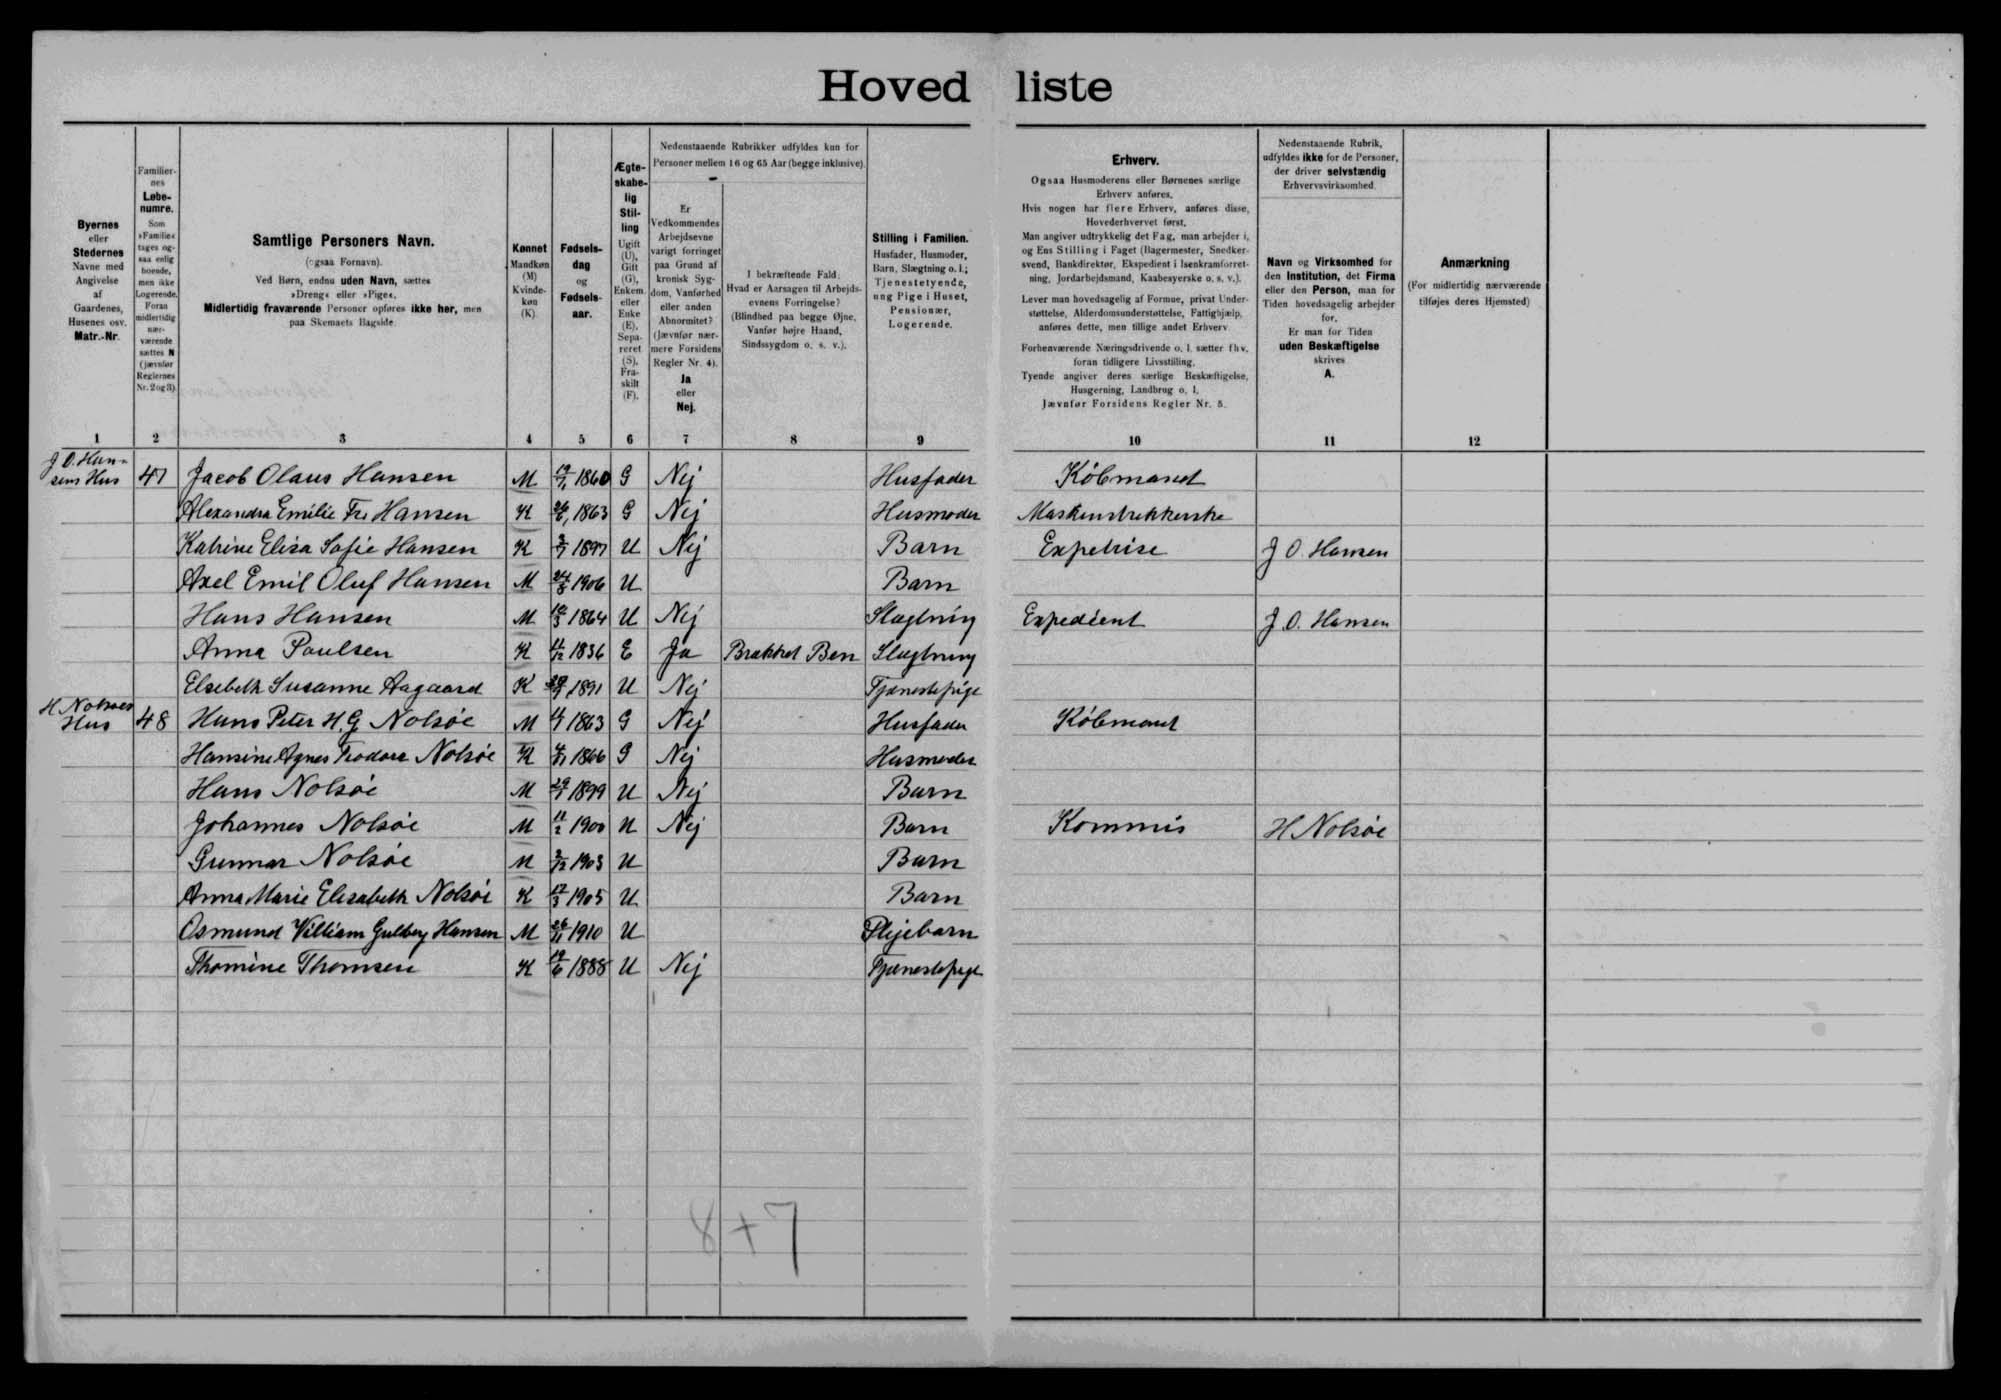 Hovedliste
Byernes
eller
Stedernes
Navne med
Angivelse
af
Gaardenes,
Husenes osv.
Matr.-Nr.
Familier-
nes
Løbe-
numre.
Som
»Familie«
tages og-
saa enlig
boende,
men ikke
Logerende.
Foran
midlertidig
nær-
værende
sættes N
(jævnfør
Reglernes
Nr. 2 og 3).
Samtlige Personers Navn.
(ogsaa Fornavn).
Ved Børn, endnu uden Navn, sættes
»Dreng« eller »Pige«.
Midlertidig fraværende Personer opføres ikke her, men
paa Skemaets Bagside.
Kønnet
Mandkøn
(M)
Kvinde-
køn
(K)
Fødsels-
dag
og
Fødsels-
aar.
Ægte-
skabe-
lig
Stil-
ling
Ugift
(U),
Gift
(G),
Enkem.
eller
Enke
(E),
Sepa-
reret
(S),
Fra-
skilt
(F).
Nedenstaaende Rubrikker udfyldes kun for
Personer mellem 16 og 65 Aar (begge inklusive).
Er
Vedkommendes
Arbejdsevne
varigt forringet
paa Grund af
kronisk Syg-
dom, Vanførhed
eller anden
Abnormitet?
(Jævnfør nær-
mere Forsidens
Regler Nr. 4).
Ja
eller
Nej.
I bekræftende Fald:
Hvad er Aarsagen til Arbejds-
evnens Forringelse?
(Blindhed paa begge Øjne,
Vanfør højre Haand,
Sindssygdom o. s. v.).
Stilling i Familien.
Husfader, Husmoder,
Barn, Slægtning o. l.;
Tjenestetyende,
ung Pige i Huset,
Pensionær,
Logerende.
Erhverv.
Ogsaa Husmoderens eller Børnenes særlige
Erhverv anføres.
Hvis nogen har flere Erhverv, anføres disse,
Hovederhvervet først.
Man angiver udtrykkelig det Fag, man arbejder i,
og Ens Stilling i Faget (Bagermester, Snedker-
svend, Bankdirektør, Ekspedient i Isenkramforret-
ning, Jordarbejdsmand, Kasbesyerske o. s. v.).
Lever man hovedsagelig af Formue, privat Under-
støttelse, Alderdomsunderstøttelse, Fattighjælp,
anføres dette, men tillige andet Erhverv.
Forhenværende Næringsdrivende o. l. sætter fhv.
foran tidligere Livsstilling.
Tyende angiver deres særlige Beskæftigelse,
Husgerning, Landbrug o. l.
Jævnfør Forsidens Regler Nr. 5.
Nedenstaaende Rubrik,
udfyldes ikke for de Personer,
der driver selvstændig
Erhvervsvirksomhed.
Navn og Virksomhed for
den Institution, det Firma
eller den Person, man for
Tiden hovedsagelig arbejder
for.
Er man for Tiden
uden Beskæftigelse
skrives
A.
Anmærkning
(For midlertidig nærværende
tilføjes deres Hjemsted)
1 2 3 4 5 6 7 8 9 10 11 12
J O. Han-
sens Hus 47 Jacob Olaus Hansen M 19/7 1860 G Nej Husfader Købmand
Alexandra Emilie Fr. Hansen K 1863 G Nej Husmoder Maskinstrikkerske
Katrine Elisa Sofie Hansen K 1897 U Nej Barn Expetrise J O. Hansen
Axel Emil Oluf Hansen M 24/8 1906 U Barn
Hans Hansen M 1864 U Nej Slægtning Expedient J. O. Hansen
Anna Poulsen K 11/12 1836 E Ja Brækket Ben Slægtning
Elsebeth Susanne Aagaard K 1891 U Nej Tjænestepige
H Nolsøes
Hus 48 Hans Peter H. G Nolsøe M 1863 G Nej Husfader Købmand
Hansine Agnes Teodora Nolsøe K 1866 G Nej Husmoder
Hans Nolsøe M 29/7 1899 U Nej Barn
Johannes Nolsøe M 11/2 1900 U Nej Barn Kommis H Nolsøe
Gunnar Nolsøe M 2/12 1903 U Barn
Anna Marie Elisabeth Nolsøe K 17/3 1905 U Barn
Osmund Villiam Gulberg Hansen M 26/11 1910 U Plejebarn
Thomine Thomsen K 19/6 1888 U Nej Tjænestepige
8+7